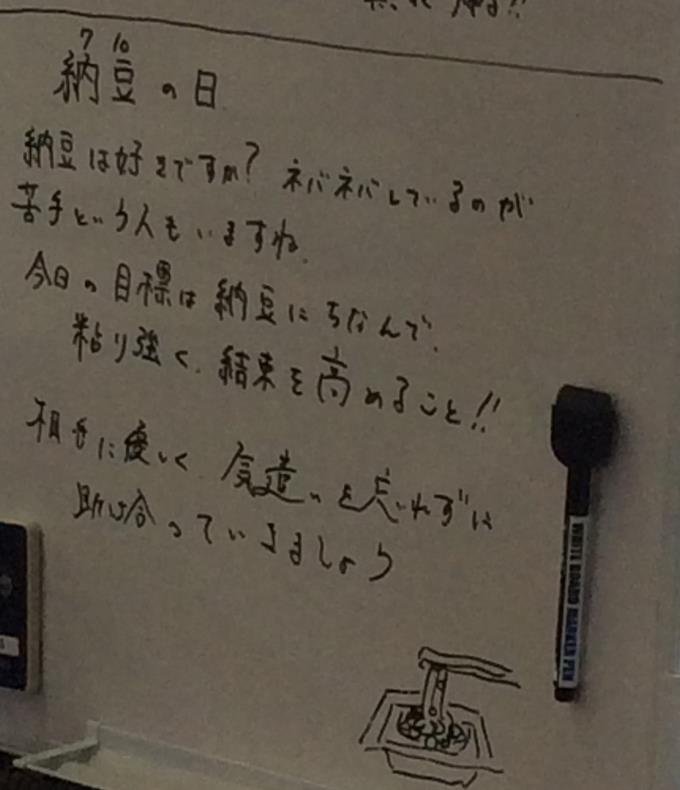 7 10
納豆の日
納豆は好きですか? ネバネバしているのが
苦手という人もいますね。
今日の目標は納豆にちなんで、
粘り強く、結束を高めること!!
相手に優しく、気遣いを忘れずに
助け合っていきましょう
WHITE BOARD MARKER PEN